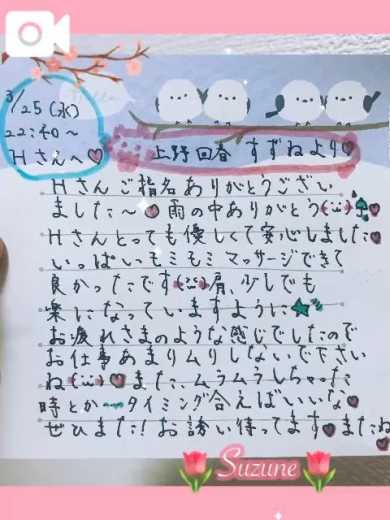 3/25(水)
22:40~
Hさんへ♡
上野回春 すずねより♡
Hさんご指名ありがとうござい
ました~♡雨の中ありがとう(¨̮)
Hさんとっても優しくて安心しました♡
いっぱいモミモミマッサージできて
良かったです(¨̮)肩、少しでも
楽になっていますように★
お疲れさまのような感じでしたので
お仕事あまりムリしないで下さい
ね(¨̮)♡また、ムラムラしちゃった
時とか〰タイミング合えばいいな♡
ぜひまた!お誘い待ってます♡またね
♡
Suzune